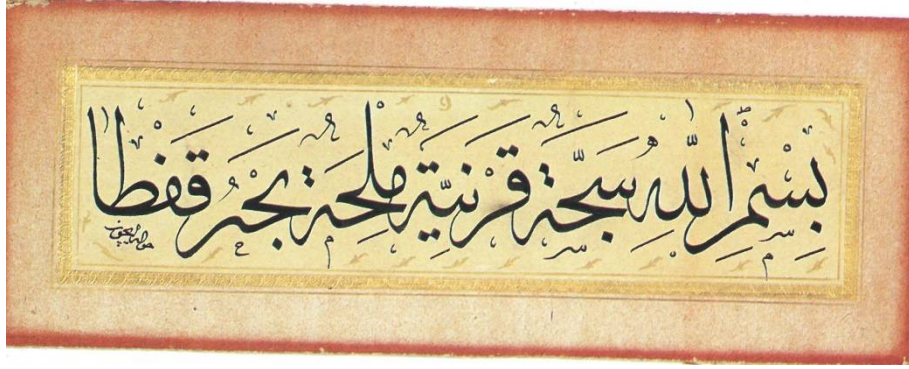 بِسْمِ اللّٰهِ سَجَّةٌ قَرَنِيَّةٌ مِلْحَةٌ بَحْرٍ قَفْطَا